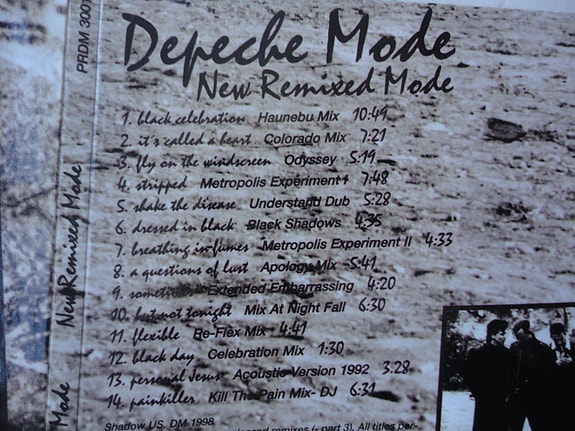 PRDM 3001
New Remixed Mode
Mode
Depeche Mode
New Remixed Mode
1. black celebration Haunebu Mix 10:49
2. it's called a heart Colorado Mix 7:21
3. fly on the windscreen Odyssey 5:19
4. stripped Metropolis Experiment I 7:48
5. shake the disease Understand Dub 5:28
6. dressed in black Black Shadows 4:35
7. breathing in fumes Metropolis Experiment II 4:33
8. a questions of lust Apology Mix 5:41
9. sometimes Extended Embarrassing 4:20
10. but not tonight Mix At Night Fall 6:30
11. flexible Re-Flex Mix 4:41
12. black day Celebration Mix 1:30
13. personal Jesus Acoustic Version 1992 3:28
14. painkiller Kill The Pain Mix- DJ 6:31
Shadow US, DM 1998
remixes (- part 3). All titles per-